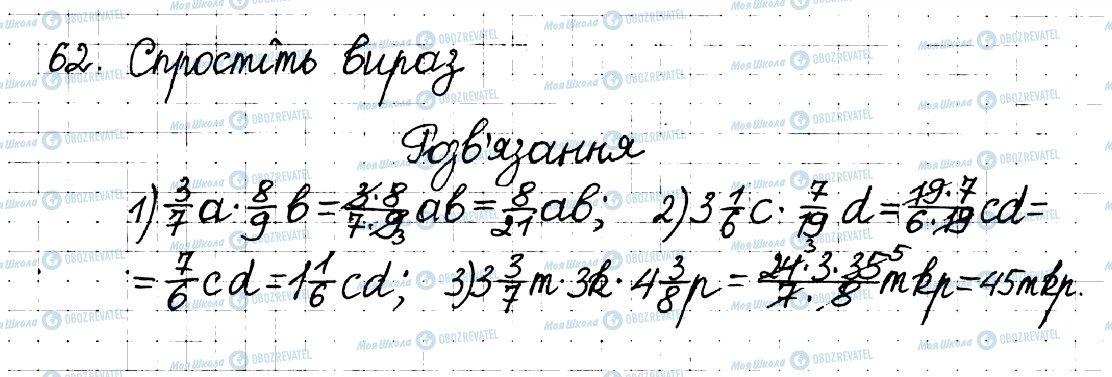 62. Спростіть вираз
Розв'язання
1) 3/7 a · 8/9 b = 3·8/7·9 3 ab = 8/21 ab; 2) 3 1/6 c · 7/19 d = 19·7/6·19 cd =
= 7/6 cd = 1 1/6 cd; 3) 3 3/7 m · 3k · 4 3/8 p = 24 3 · 3 · 35 5/7 · 8 mkp = 45mkp.